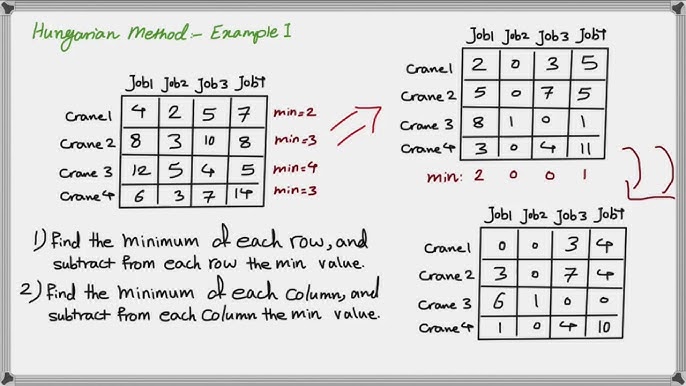 Hungarian Method:- Example 1
Job1 Job2 Job3 Job4
Crane1 4 2 5 7 min=2
Crane 2 8 3 10 8 min=3
Crane 3 12 5 4 5 min=4
Crane 4 6 3 7 14 min=3
1) Find the minimum of each row, and
subtract from each row the min value.
2) Find the minimum of each column, and
subtract from each column the min value.
Job1 Job2 Job3 Job4
Crane1 2 0 3 5
Crane 2 5 0 7 5
Crane 3 8 1 0 1
Crane 4 3 0 4 11
min: 2 0 0 1
Job1 Job2 Job3 Job4
Crane1 0 0 3 4
Crane 2 3 0 7 4
Crane 3 6 1 0 0
Crane 4 1 0 4 10